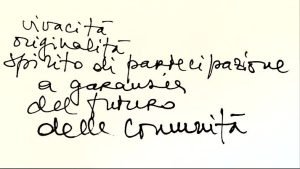 vivacità
originalità
spirito di partecipazione
a garanzia
del futuro
delle comunità